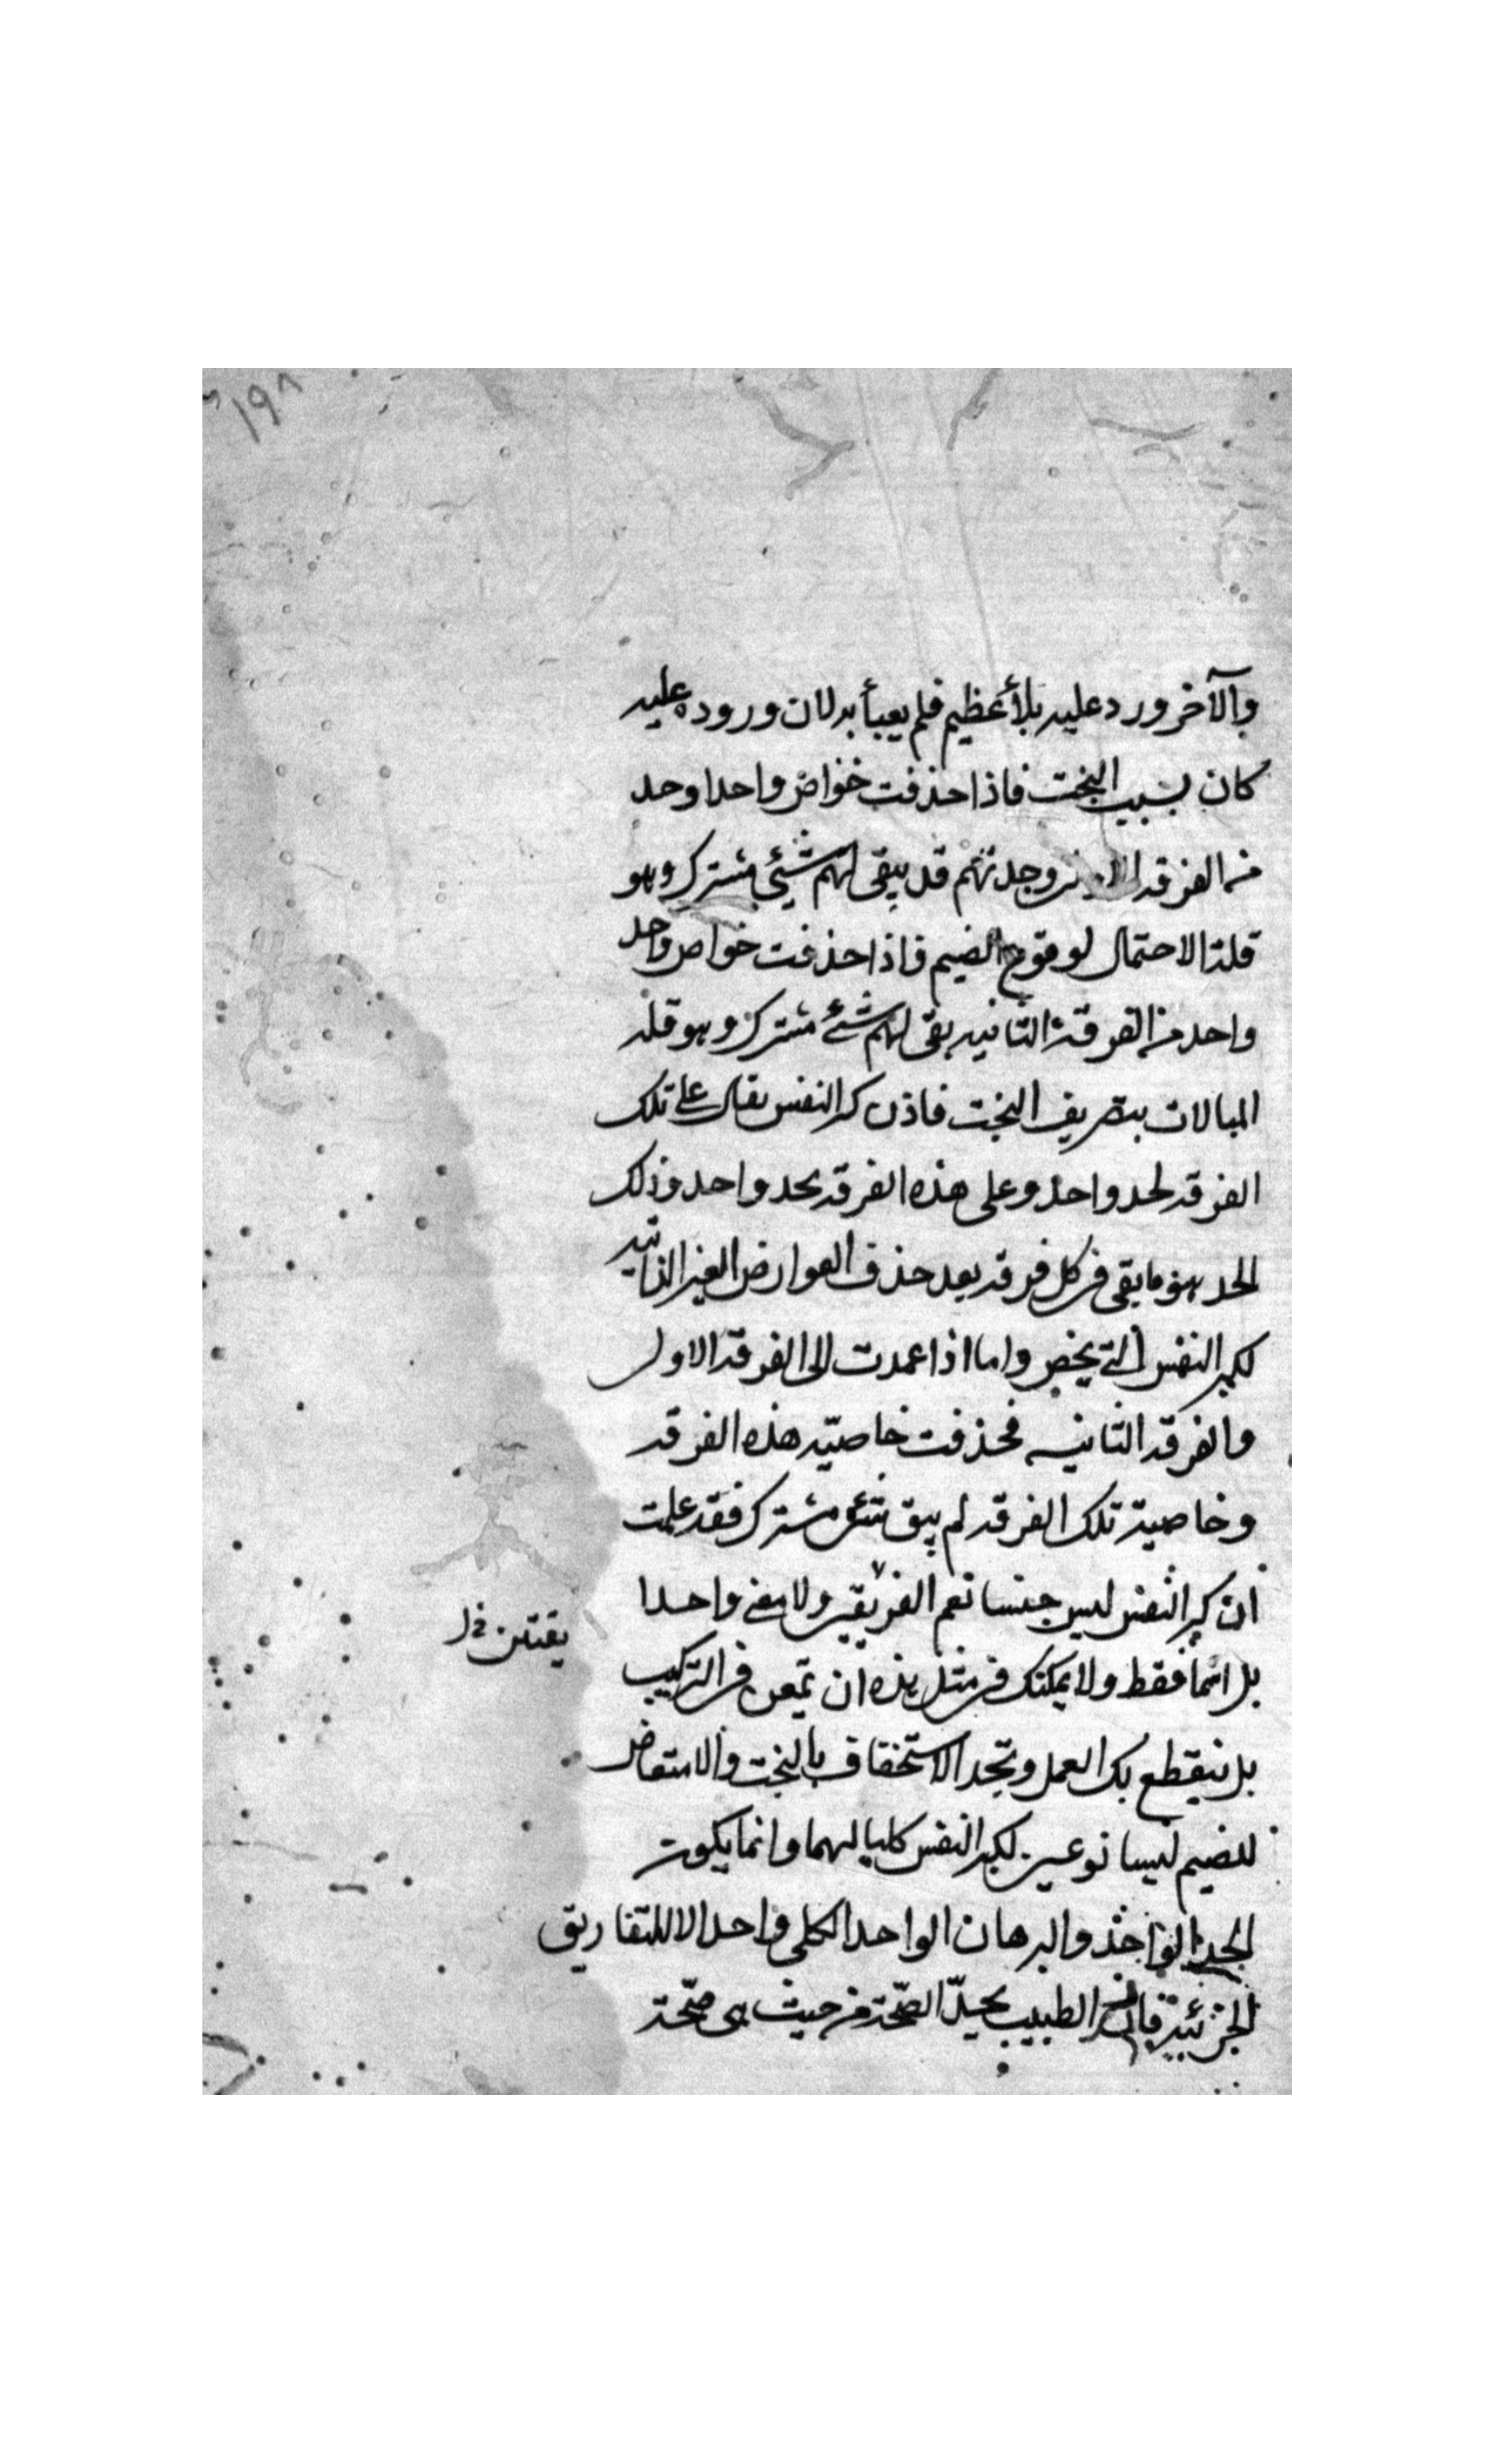 ١٩٨
والآخر ورد عليه بلأ عظيم فلم يعبأ به لان وروده عليه
كان بسبب البخت فاذا حذفت خواص واحد واحد
من الفرقة وجدتهم قد يبقى لهم شيئ مشترك وهو
قلة الاحتمال لوقوع الضيم فاذا حذفت خواص واحد
واحد من الفرقة الثانيه بقى لهم شئ مشترك وهو قلة
المبالات بتصريف البخت فاذن كبر النفس يقال على تلك
الفرقه لحد واحد وعلى هذه الفرقه بحد واحد وذلك
الحد هو ما يبقى فى كل فرقه بعد حذف العوارض الغير الذاتيه
لكبر النفس التى يخص واما اذا عمدت الى الفرقة الاولى
والفرقة الثانيه فحذفت خاصيّه هذه الفرقه
وخاصية تلك الفرقه لم يبق شئ مشترك فقد علمت
ان كبر النفس ليس جنسا تعم الفريقين ولا معنى واحدا
بل اسما فقط ولا يمكنك فى مثل هذه ان تمعن فى التركيب
بل ينقطع بك العمل وتجد الاستخفاف بالبخت والامتعاض
للضيم ليسا نوعين لكبر النفس كليا لهما وانما يكون
الحد الواحد والبرهان الواحد الكلى واحد الا للتفاريق
الجزئية فان الطبيب يحدّ الصّحة من حيث هى صّحة